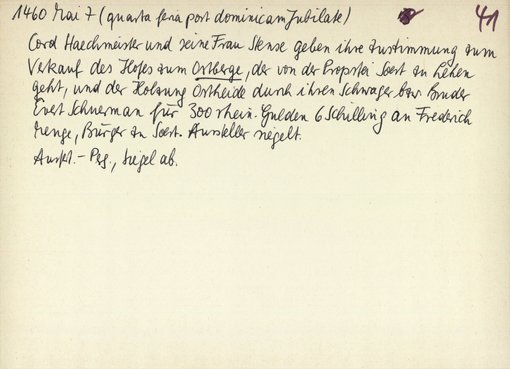 1460 Mai 7 (quarta feria post dominicam Jubilate) 41
Cord Haechmeister und seine Frau Stense geben ihre Zustimmung zum
Verkauf des Hofes zum Ostberge, der von der Propstei Soest zu Lehen
geht, und der Holzung Ostheide durch ihren Schwager bzw. Bruder
Evert Schuerman für 300 rhein. Gulden 6 Schilling an Frederich
Menge, Bürger zu Soest. Aussteller siegelt.
Ausf.- Pg., Siegel ab.